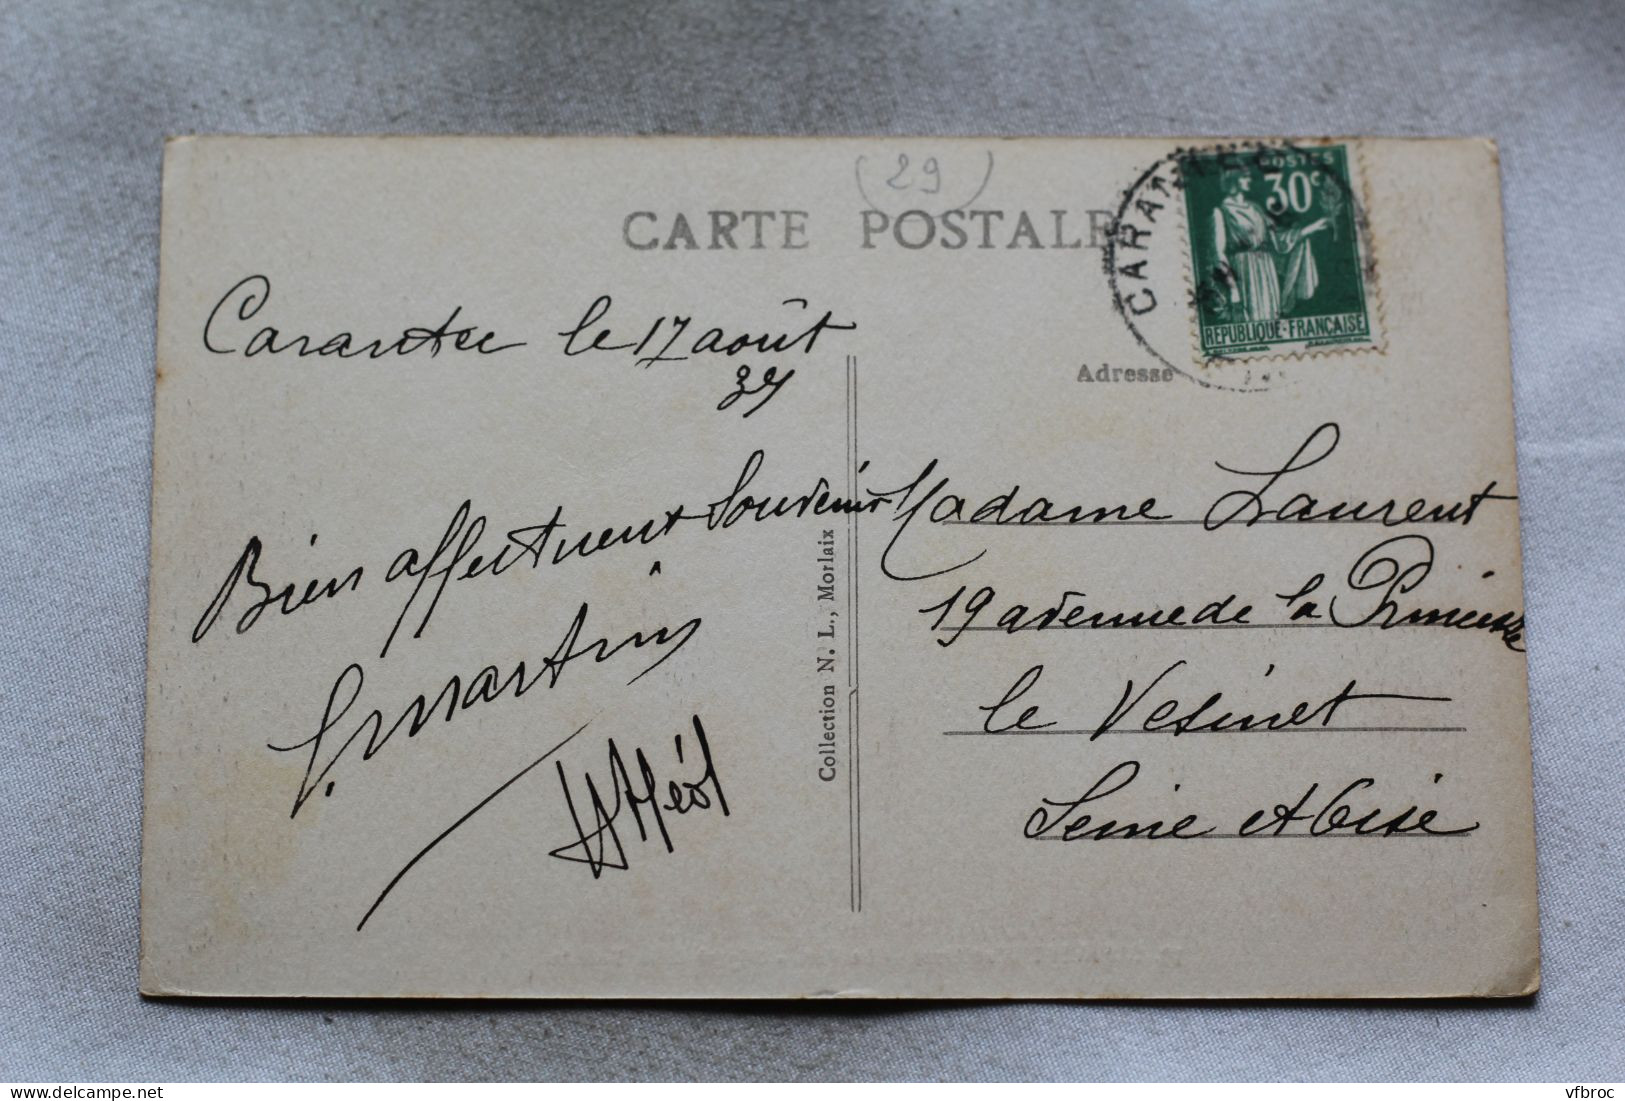 (29)
CARTE POSTALE
CARANTEC
POSTES
30c
REPUBLIQUE-FRANÇAISE
Adresse
Carantec le 17 août
Bien affectueux Souvenir
Martin
Collection N. L., Morlaix
Madame Laurent
19 avenue de la Princesse
le Vésinet
Seine et Oise
Delcampe.net
vfbroc